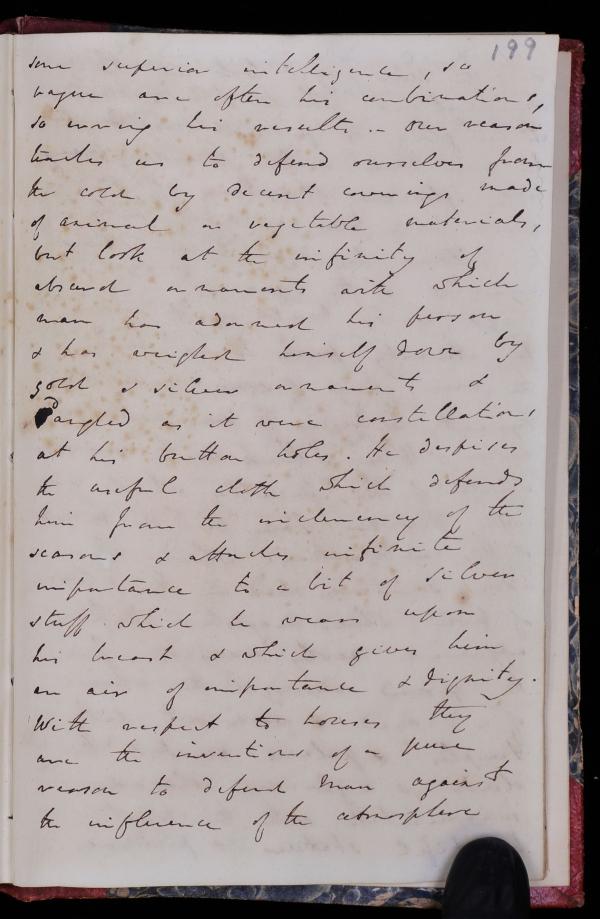 199
some superior intelligence, so
vague are often his combinations,
so erring his results. – Our reason
teaches us to defend ourselves from
the cold by decent coverings made
of animal or vegetable materials,
but look at the infinity of
absurd ornaments with which
man has adorned his person
& has weighed himself down by
gold & silver ornaments &
dangled as it were constellations
at his button holes. He despises
the useful cloth which defends
him from the inclemency of the
seasons & attaches infinite
importance to a bit of silver
stuff which he wears upon
his breast & which gives him
an air of importance & dignity.
With respect to houses they
are the inventions of a pure
reason to defend man against
the influence of the atmosphere